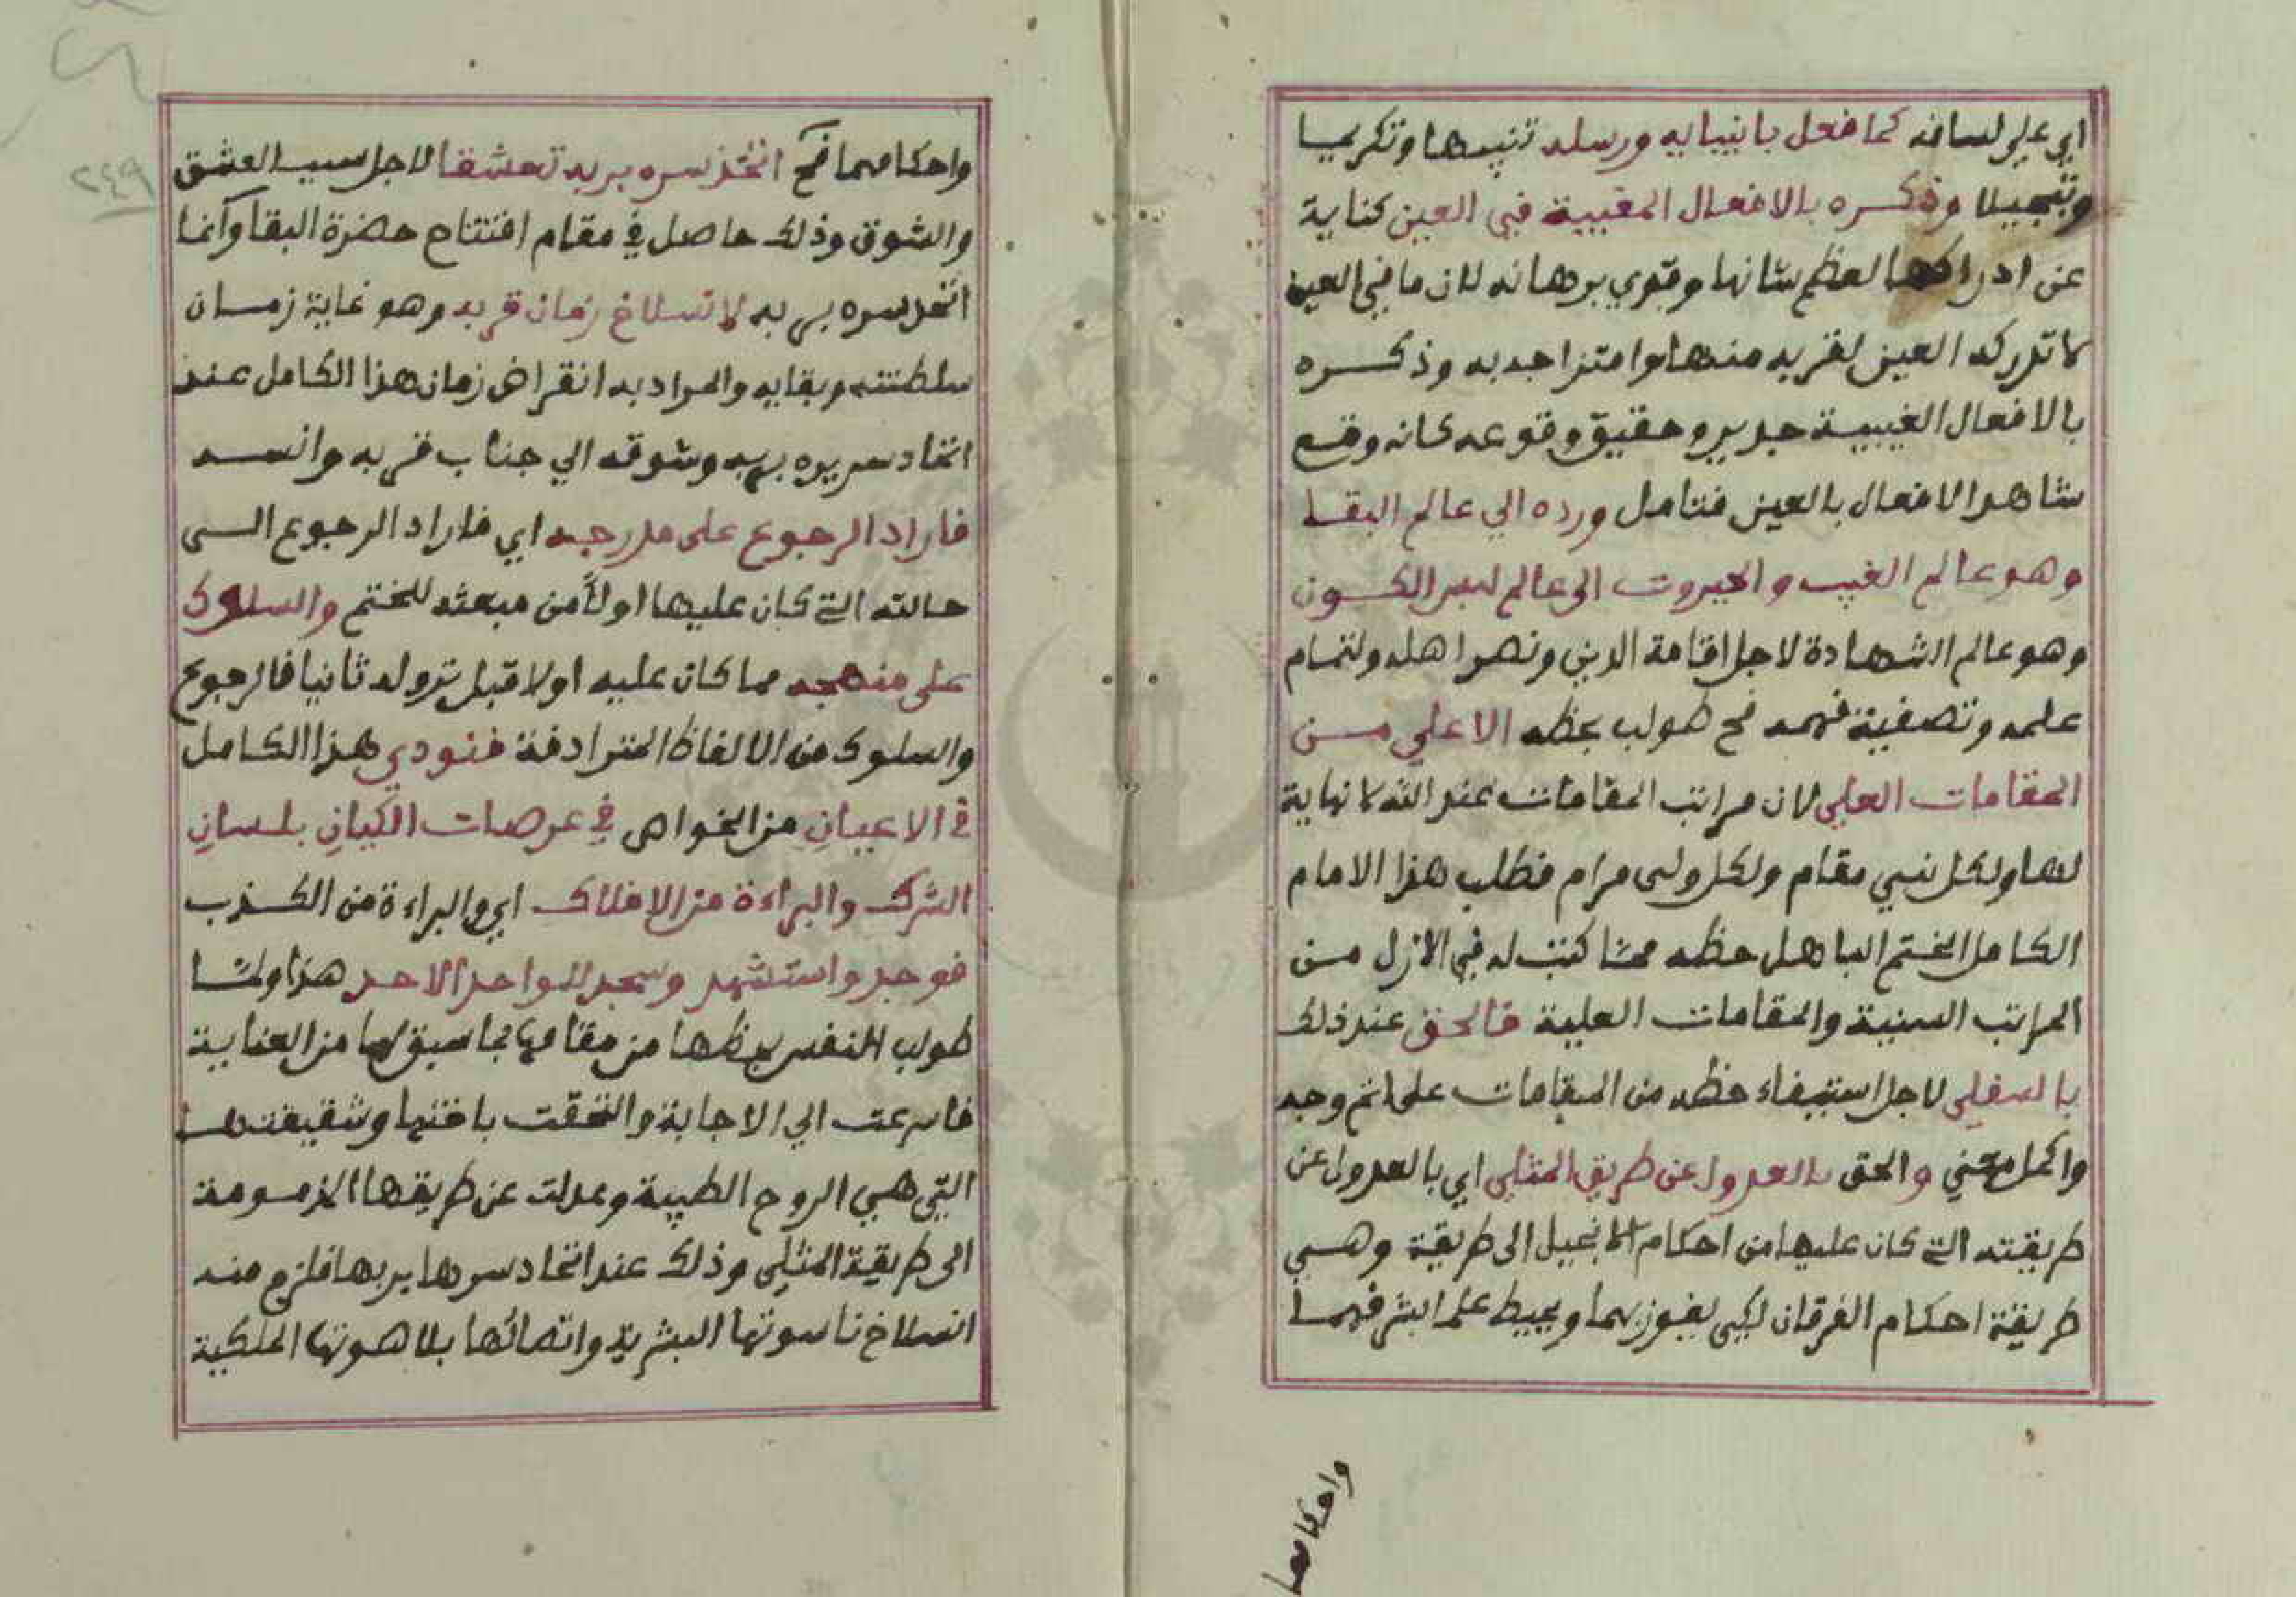 اي علي لسانه كما فعل بانبيايه ورسله تنبيها وتكريما
وتبجيلا وذكره بالافعال المغيبية في العين كناية
عن ادراكها لعظم شانها وقوي برهانه لان ما في العين
لا تدركه العين لقربه منها وامتزاجه به وذكره
بالافعال الغيبية جدير وحقيق وقوعه كانه وقع
شاهد الافعال بالعين فتامل ورده الي عالم البقا
وهو عالم الغيب والجبروت الى عالم الكون
وهو عالم الشهادة لاجل اقامة الدين ونصر اهله ولتمام
علمه وتصفية فهمه فح طولب بحظه الاعلي من
المقامات العلي لان مراتب المقامات عند الله لا نهاية
لها ولكل نبي مقام ولكل ولى مرام فطلب هذا الامام
الكامل الختم حظه مما كتب له في الازل من
المراتب السنية والمقامات العلية فالحق عند ذلك
بالسفلي لاجل استيفاء حظه من المقامات على اتم وجه
واكمل معني والحق بالعدول عن طريق المثلي اي بالعدول عن
طريقته التي كان عليها من احكام الانجيل الى طريقة وهي
طريقة احكام الفرقان لكي يفوز بهما ويحيط علم البشر فيهما
واحكامهما
واحكامهما فح اتخذ سره بربه تعشقا لاجل سبب العشق
والشوق وذلك حاصل في مقام افتتاح حضرة البقا وانما
اتخذ سره بربه لانسلاخ زمان قربه وهو غاية زمان
سلطنته وبقايه والمراد به انقراض زمان هذا الكامل عند
اتحاد سريره بربه وشوقه الي جناب قربه وانسه
فاراد الرجوع على مدرجه اي فاراد الرجوع الى
حالته التي كان عليها اولاً من مبعثه للختم والسلوك
على منهجه مما كان عليه اولا قبل نزوله ثانيا فالرجوع
والسلوك من الالفاظ المترادفة فنودي هذا الكامل
في الاعيان من الخواص في عرصات الكيان بلسان
الشرك والبراءة من الافلاك اي والبراءة من الكذب
فوجد واستشهد وسجد للواحد الاحد هذا ولما
طولب النفس بحظها من مقامها بما سبق لها من العناية
فاسرعت الي الاجابة والتحقت باختها وشقيقتها
التي هي الروح الطيبة وعدلت عن طريقها المذمومة
الى طريقة المثلي وذلك عند اتحاد سرها بربها فلزم منه
انسلاخ ناسوتها البشرية واتصالها بلاهوتها الملكية
٢٤٩